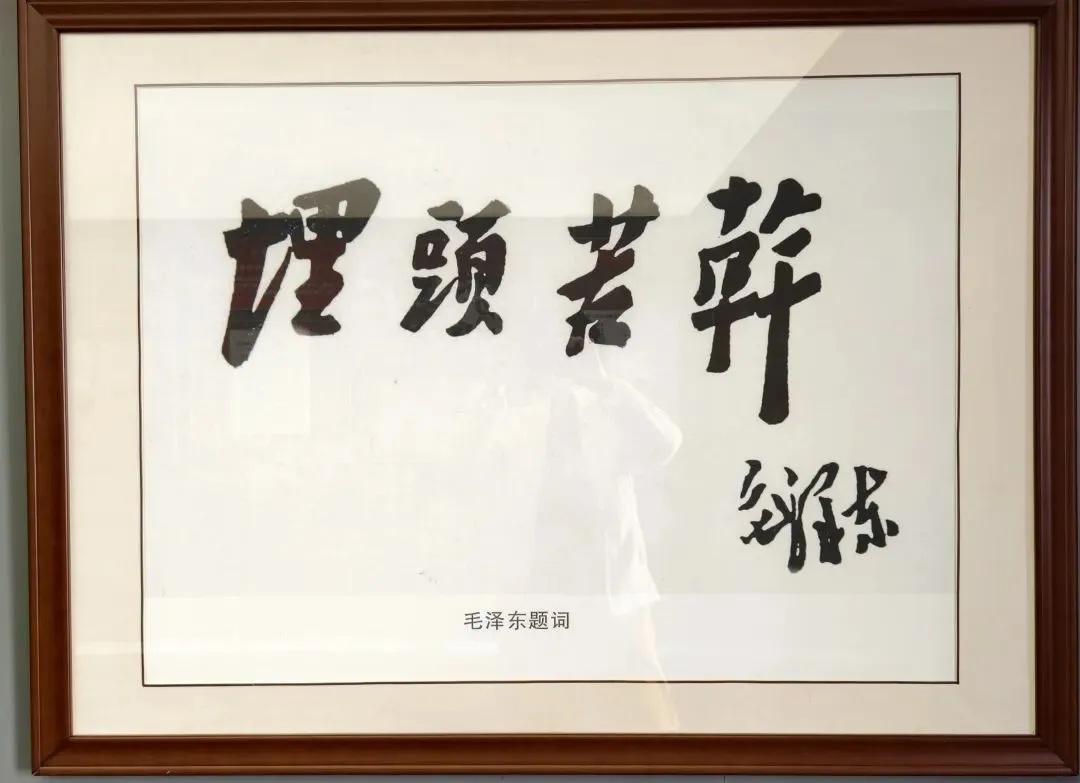 埋頭苦幹
毛泽东
毛泽东题词